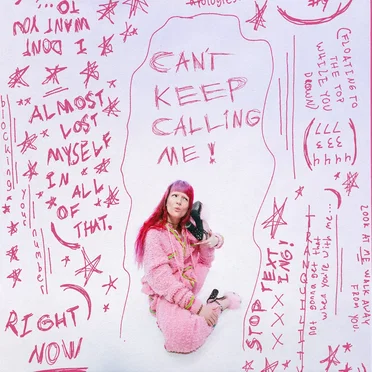 I DONT
WANT YOU
TO...
CAN'T
KEEP
CALLING
ME!
ALMOST
LOST
MYSELF
IN ALL
OF
THAT.
blocking
your
number
RIGHT
NOW
(FLOATING TO
THE TOP
WHILE YOU
DROWN)
STOP TEXT
ING!
gonna get that
when you're with me...
LOOK AT ME WALK AWAY
FROM YOU.